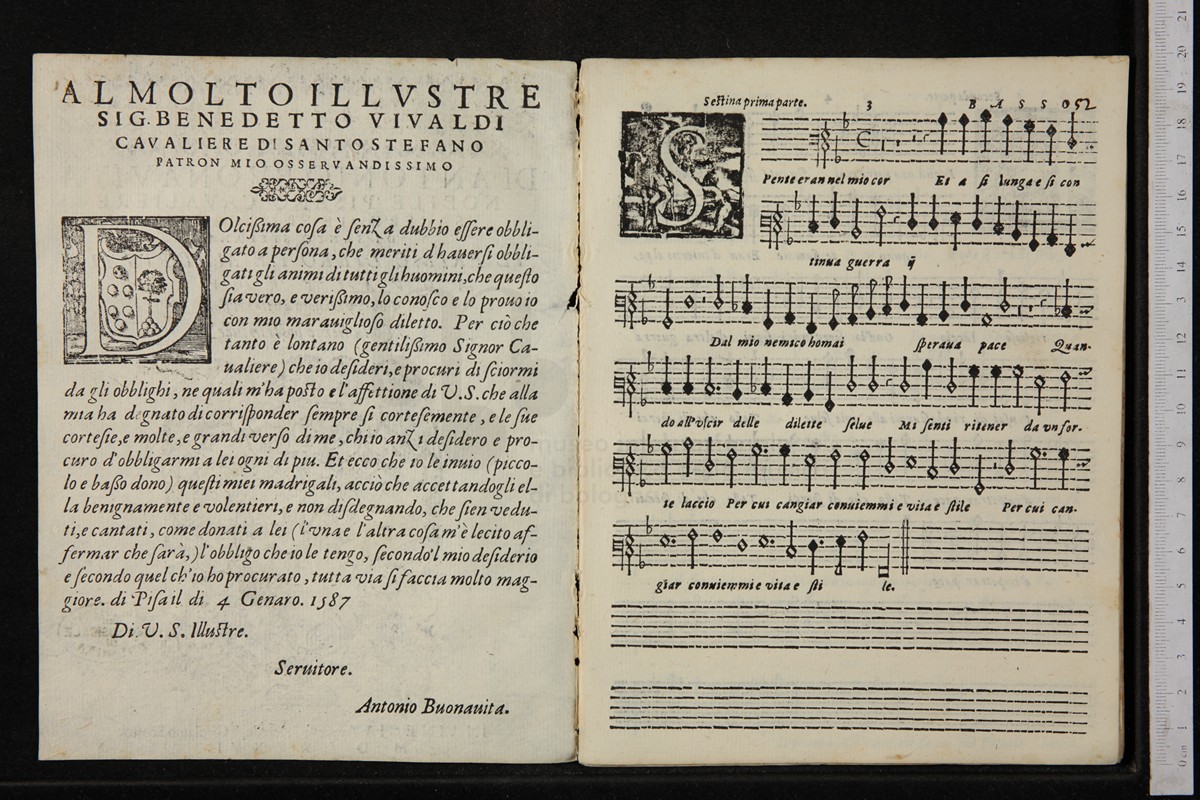 AL MOLTO ILLVSTRE
SIG. BENEDETTO VIVALDI
CAVALIERE DI SANTO STEFANO
PATRON MIO OSSERVANDISSIMO
DOlcißima cosa è senza dubbio essere obbli-
gato a persona, che meriti d'hauersi obbli-
gati gli animi di tutti gli huomini, che questo
sia vero, e verißimo, lo conosco e lo prouo io
con mio marauiglioso diletto. Per ciò che
tanto è lontano (gentilißimo Signor Ca-
ualiere) che io desideri, e procuri di sciormi
da gli obblighi, ne quali m'ha posto e l'affettione di V.S. che alla
mia ha degnato di corrisponder sempre sì cortesemente, e le sue
cortesie, e molte, e grandi verso di me, ch'io anzi desidero e pro-
curo d'obbligarmi a lei ogni di piu. Et ecco che io le inuio (picco-
lo e baßo dono) questi miei madrigali, acciò che accettandogli el-
la benignamente e volentieri, e non disdegnando, che sien vedu-
ti, e cantati, come donati a lei (l'vna e l'altra cosa m'è lecito af-
fermar che sarà,) l'obbligo che io le tengo, secondo'l mio desiderio
e secondo quel ch'io ho procurato, tutta via si faccia molto mag-
giore. di Pisa il di 4 Genaro. 1587
Di V. S. Illustre.
Seruitore.
Antonio Buonauita.
Sestina prima parte. 3 BASSO 52
SPente eran nel mio cor Et a sì lunga e sì con
tinua guerra ij
Dal mio nemico homai speraua pace Quan-
do all'vscir delle dilette selue Mi sentì ritener da vn for-
te laccio Per cui cangiar conuiemmi e vita e stile Per cui can-
giar conuiemmi e vita e sti le.